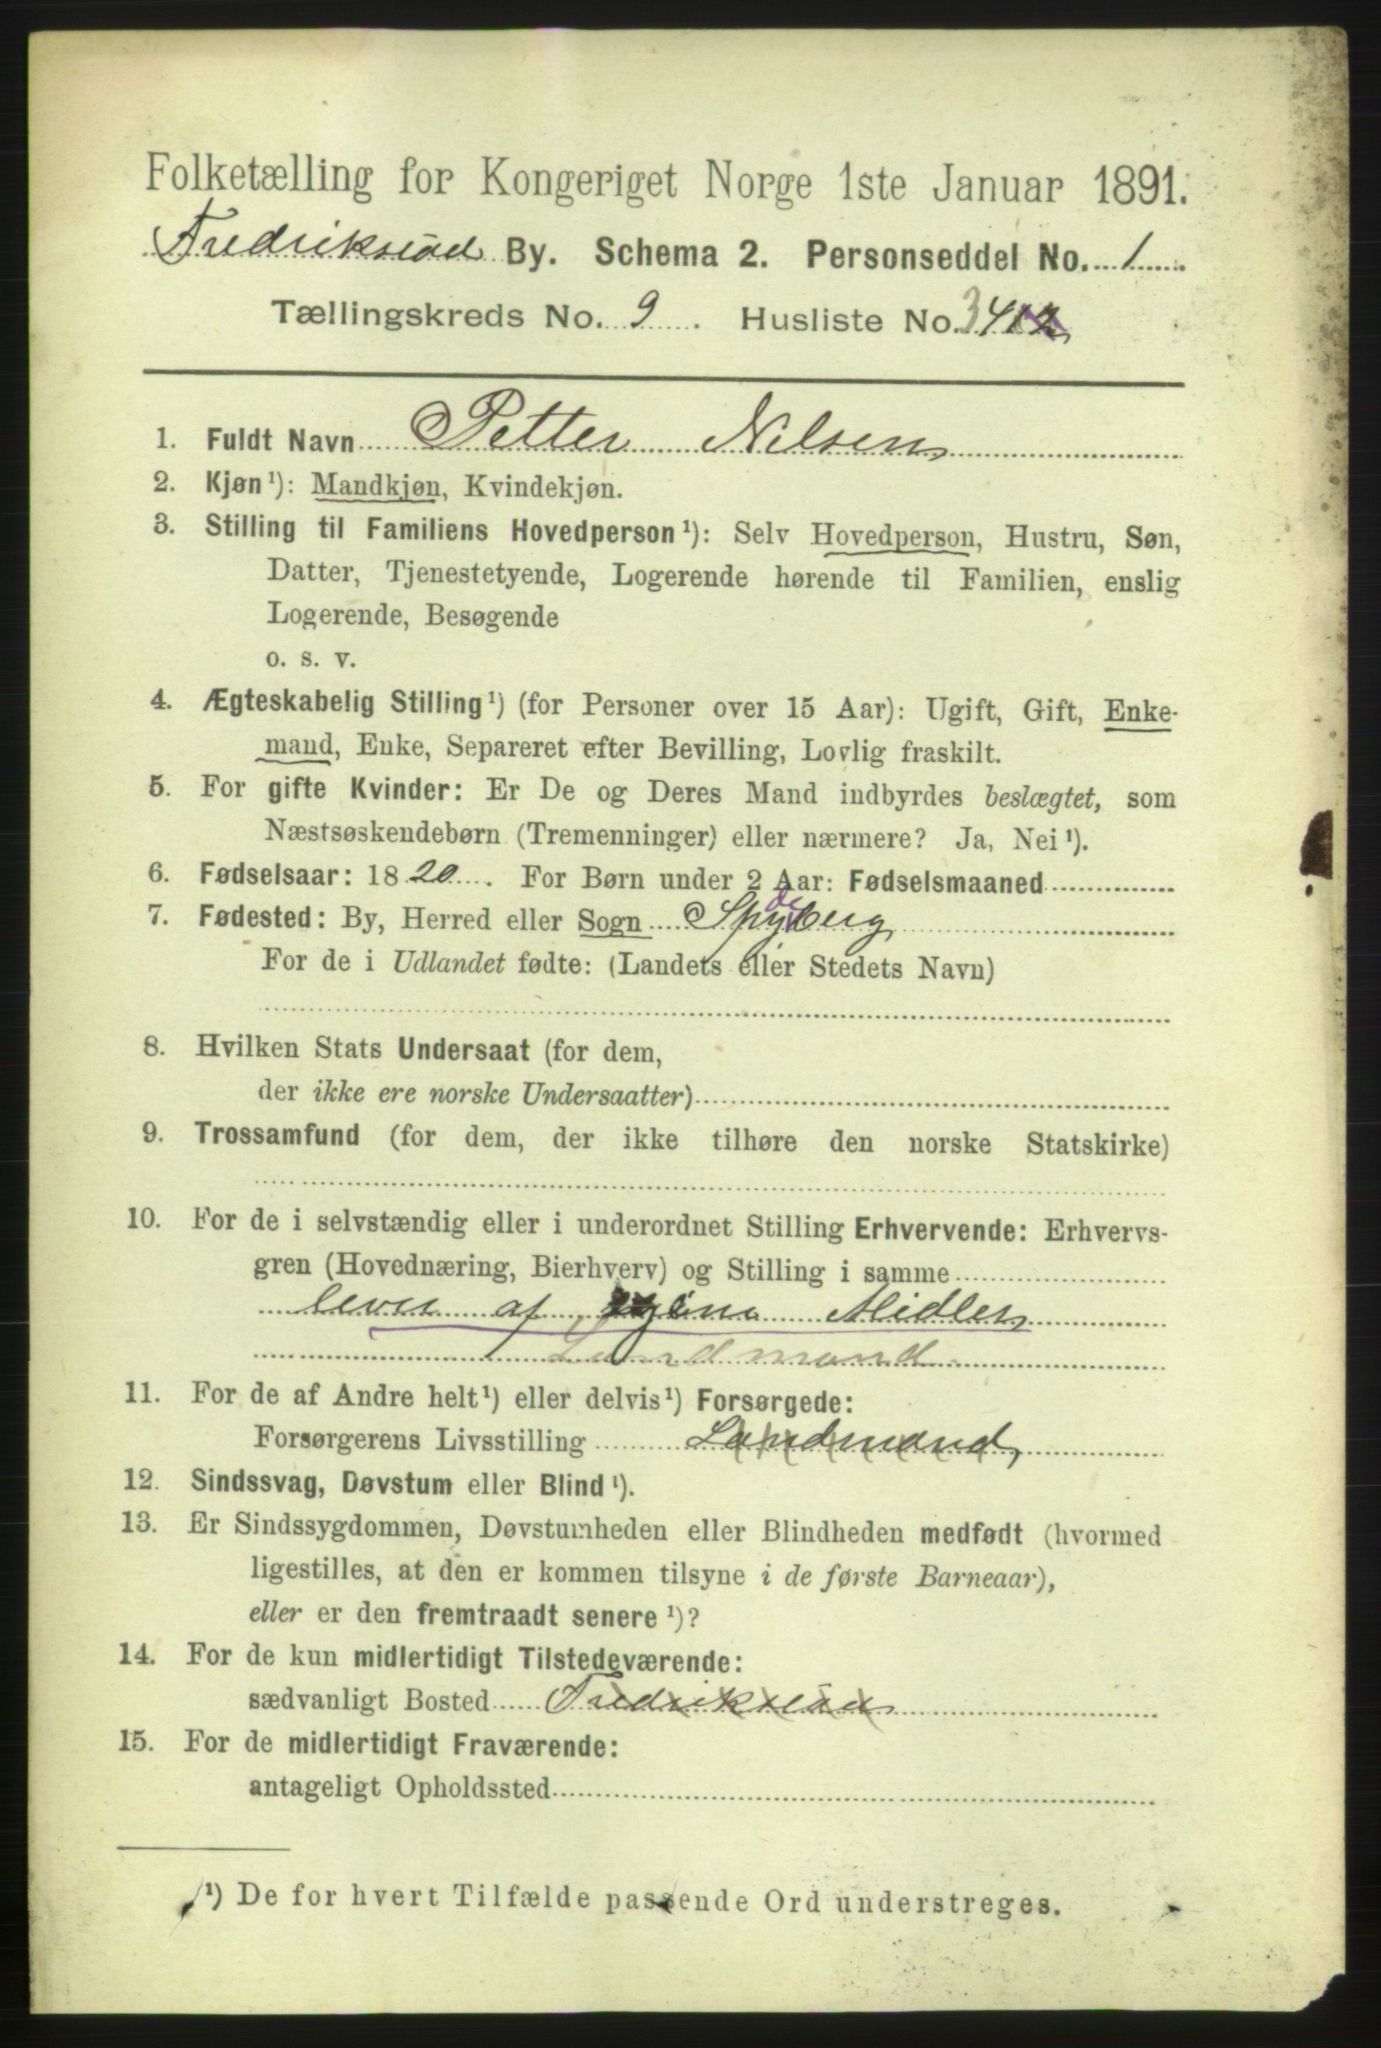 Folketælling for Kongeriget Norge 1ste Januar 1891.
Fredriksstad By. Schema 2. Personseddel No. 1
Tællingskreds No. 9. Husliste No. 341
1. Fuldt Navn Petter Nilsen
2. Kjøn¹): Mandkjøn, Kvindekjøn.
3. Stilling til Familiens Hovedperson¹): Selv Hovedperson, Hustru, Søn,
Datter, Tjenestetyende, Logerende hørende til Familien, enslig
Logerende, Besøgende
o. s. v.
4. Ægteskabelig Stilling¹) (for Personer over 15 Aar): Ugift, Gift, Enke-
mand, Enke, Separeret efter Bevilling, Lovlig fraskilt.
5. For gifte Kvinder: Er De og Deres Mand indbyrdes beslægtet, som
Næstsøskendebørn (Tremenninger) eller nærmere? Ja, Nei¹).
6. Fødselsaar: 1820. For Børn under 2 Aar: Fødselsmaaned
7. Fødested: By, Herred eller Sogn Spydeberg
For de i Udlandet fødte: (Landets eller Stedets Navn)
8. Hvilken Stats Undersaat (for dem,
der ikke ere norske Undersaatter)
9. Trossamfund (for dem, der ikke tilhøre den norske Statskirke)
10. For de i selvstændig eller i underordnet Stilling Erhvervende: Erhvervs-
gren (Hovednæring, Bierhverv) og Stilling i samme
lever af egine Midler
Landmand
11. For de af Andre helt¹) eller delvis¹) Forsørgede:
Forsørgerens Livsstilling Landmand,
12. Sindssvag, Døvstum eller Blind¹).
13. Er Sindssygdommen, Døvstumheden eller Blindheden medfødt (hvormed
ligestilles, at den er kommen tilsyne i de første Barneaar),
eller er den fremtraadt senere¹)?
14. For de kun midlertidigt Tilstedeværende:
sædvanligt Bosted Fredriksstad
15. For de midlertidigt Fraværende:
antageligt Opholdssted
¹) De for hvert Tilfælde passende Ord understreges.